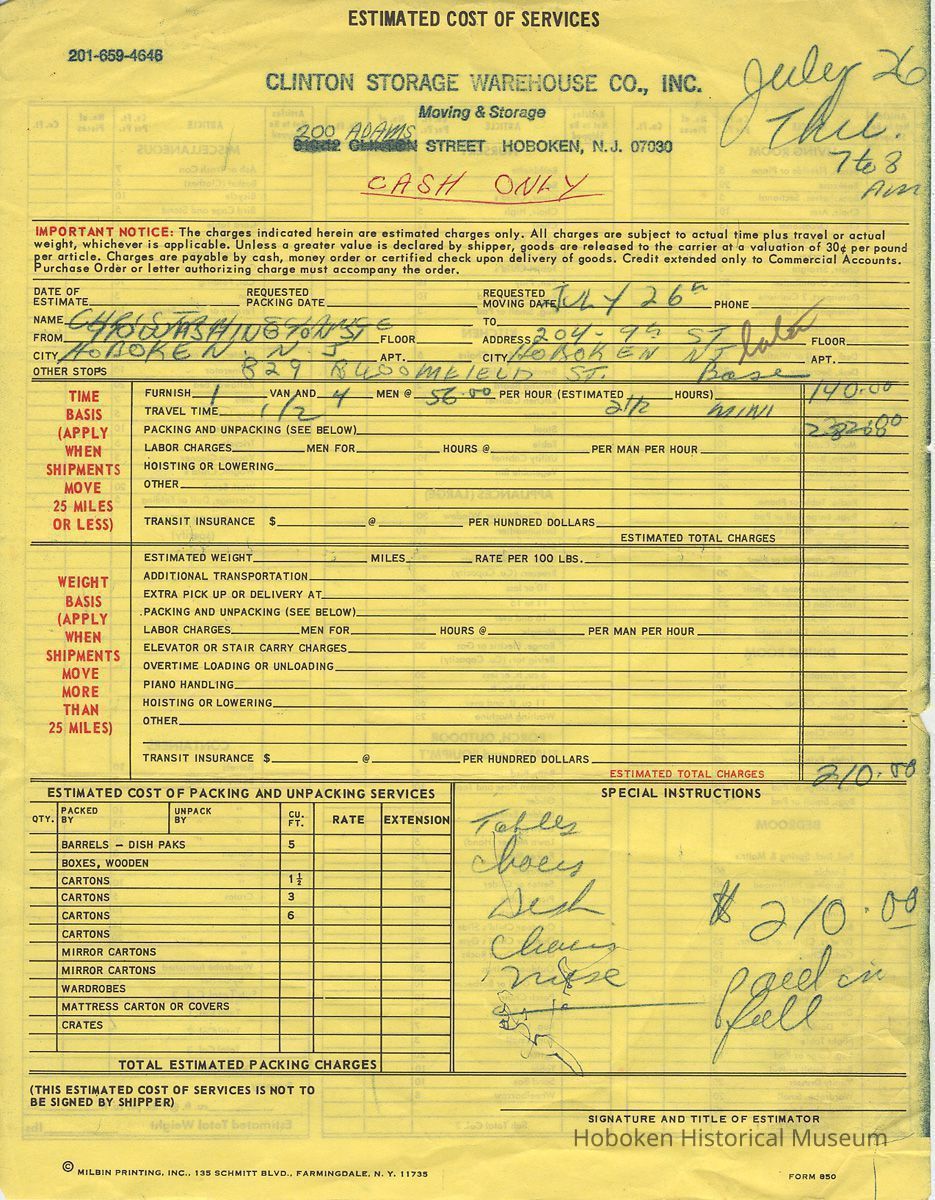 ESTIMATED COST OF SERVICES
201-659-4646
CLINTON STORAGE WAREHOUSE CO., INC.
July 26
Moving & Storage
Thu.
200 ADAMS
STREET HOBOKEN, N.J. 07030
7 to 8
AM
CASH ONLY
IMPORTANT NOTICE: The charges indicated herein are estimated charges only. All charges are subject to actual time plus travel or actual
weight, whichever is applicable. Unless a greater value is declared by shipper, goods are released to the carrier at a valuation of 30¢ per pound
per article. Charges are payable by cash, money order or certified check upon delivery of goods. Credit extended only to Commercial Accounts.
Purchase Order or letter authorizing charge must accompany the order.
DATE OF ESTIMATE REQUESTED PACKING DATE REQUESTED MOVING DATE JULY 26th PHONE
NAME TO
FROM WASHINGTON ST FLOOR ADDRESS 204-9th ST FLOOR
CITY HOBOKEN N.J APT. CITY HOBOKEN NJ APT.
OTHER STOPS 829 BLOOMFIELD ST. Base
TIME BASIS (APPLY WHEN SHIPMENTS MOVE 25 MILES OR LESS)
FURNISH 1 VAN AND 4 MEN @ 56.00 PER HOUR (ESTIMATED 2 1/2 HOURS) 140.00
TRAVEL TIME 1/2 MINI
PACKING AND UNPACKING (SEE BELOW)
LABOR CHARGES MEN FOR HOURS @ PER MAN PER HOUR
HOISTING OR LOWERING
OTHER
TRANSIT INSURANCE $ @ PER HUNDRED DOLLARS
ESTIMATED TOTAL CHARGES
WEIGHT BASIS (APPLY WHEN SHIPMENTS MOVE MORE THAN 25 MILES)
ESTIMATED WEIGHT MILES RATE PER 100 LBS.
ADDITIONAL TRANSPORTATION
EXTRA PICK UP OR DELIVERY AT
PACKING AND UNPACKING (SEE BELOW)
LABOR CHARGES MEN FOR HOURS @ PER MAN PER HOUR
ELEVATOR OR STAIR CARRY CHARGES
OVERTIME LOADING OR UNLOADING
PIANO HANDLING
HOISTING OR LOWERING
OTHER
TRANSIT INSURANCE $ @ PER HUNDRED DOLLARS
ESTIMATED TOTAL CHARGES 210.00
ESTIMATED COST OF PACKING AND UNPACKING SERVICES
QTY. PACKED BY UNPACK BY CU. FT. RATE EXTENSION
BARRELS – DISH PAKS 5
BOXES, WOODEN
CARTONS 1½
CARTONS 3
CARTONS 6
CARTONS
MIRROR CARTONS
MIRROR CARTONS
WARDROBES
MATTRESS CARTON OR COVERS
CRATES
TOTAL ESTIMATED PACKING CHARGES
SPECIAL INSTRUCTIONS
Tables
Desk
Chairs
$ 210.00
paid in
full
(THIS ESTIMATED COST OF SERVICES IS NOT TO
BE SIGNED BY SHIPPER)
SIGNATURE AND TITLE OF ESTIMATOR
Hoboken Historical Museum
© MILBIN PRINTING, INC., 135 SCHMITT BLVD., FARMINGDALE, N. Y. 11735
FORM 850